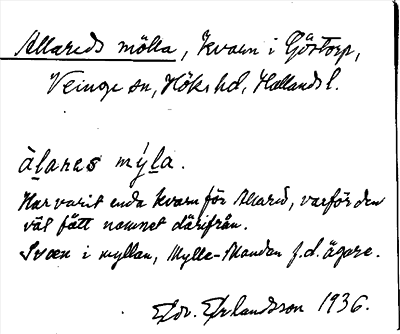 Allareds mölla, kvarn i Göstorp,
Veinge sn, Höks hd, Hallands l.
àlares mýla.
Har varit enda kvarn för Allared, varför den
väl fått namnet därifrån.
Svæn i myllan, Mylle-Manden f.d. ägare.
Edv. Erlandsson 1936.